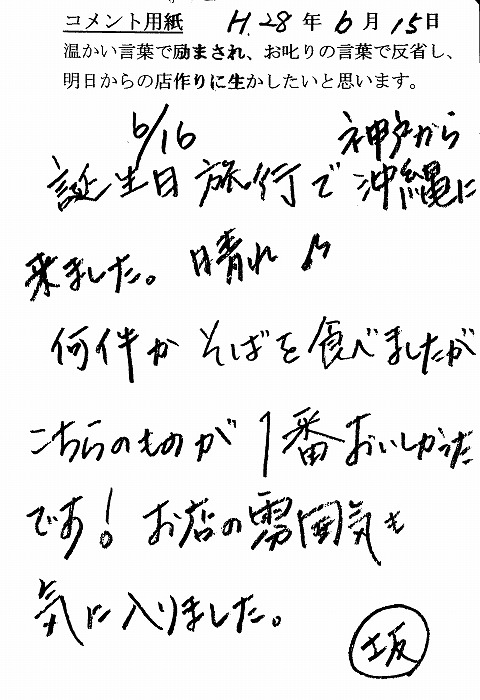 コメント用紙 H.28年6月15日
温かい言葉で励まされ、お叱りの言葉で反省し、
明日からの店作りに生かしたいと思います。
6/16 神戸から
誕生日旅行で沖縄に
来ました。晴れ♪
何件かそばを食べましたが
こちらのものが1番おいしかった
です！お店の雰囲気も
気に入りました。
坂